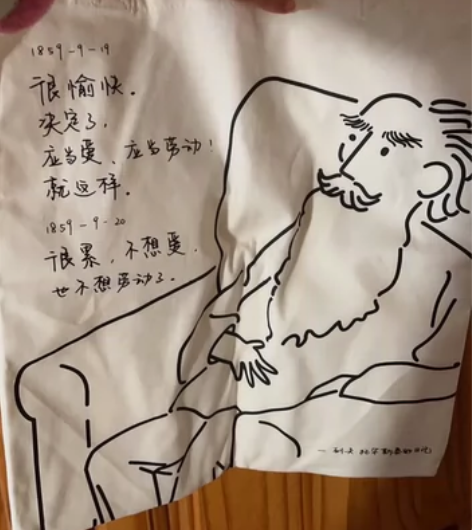 1859-9-19
很愉快.
决定了,
应当爱、应当劳动!
就这样.
1859-9-20
很累,不想爱.
也不想劳动了.
— 列夫·托尔斯泰的日记